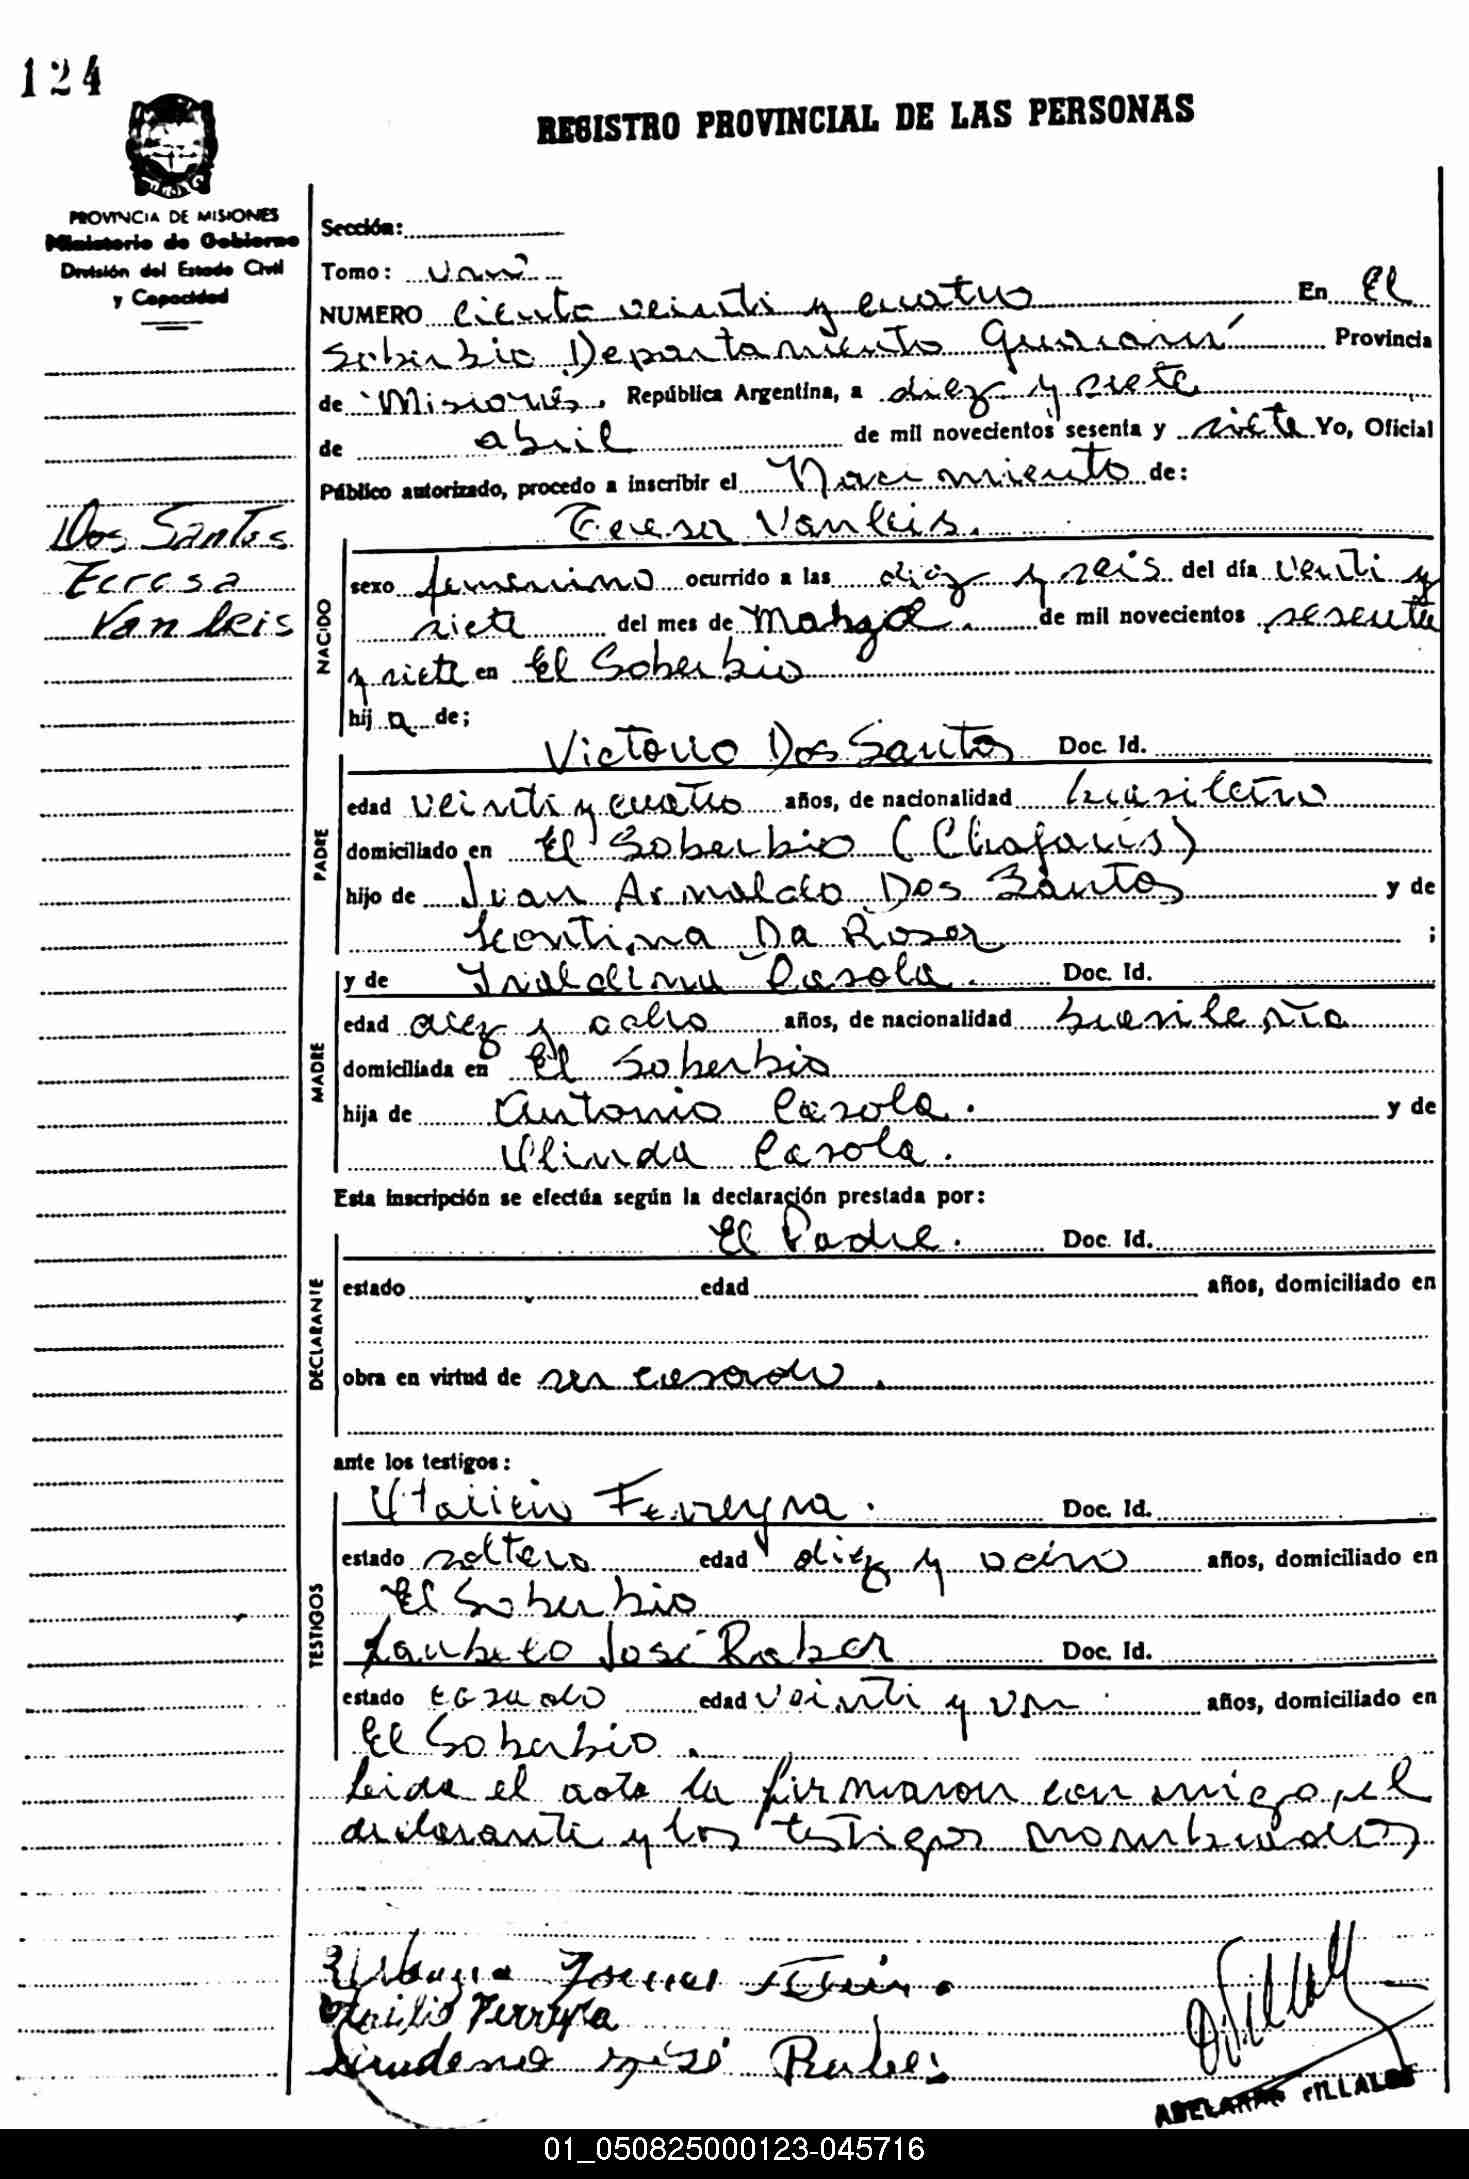 124
REGISTRO PROVINCIAL DE LAS PERSONAS
PROVINCIA DE MISIONES
Ministerio de Gobierno
División del Estado Civil
y Capacidad
Sección:
Tomo: uno
NUMERO ciento veinti y cuatro En El
Soberbio Departamento Guaraní Provincia
de Misiones, República Argentina, a diez y siete
de abril de mil novecientos sesenta y siete Yo, Oficial
Público autorizado, procedo a inscribir el Nacimiento de:
Dos Santos
Teresa
Vanleis
Teresa Vanleis.
NACIDO
sexo femenino ocurrido a las diez y seis del día venti y
siete del mes de Marzo de mil novecientos sesenta
y siete en El Soberbio
hija de;
PADRE
Victorio Dos Santos Doc. Id.
edad veinti y cuatro años, de nacionalidad brasileño
domiciliado en El Soberbio (Chafaris)
hijo de Juan Arnaldo Dos Santos y de
Leontina Da Rosa ;
MADRE
y de Casola. Doc. Id.
edad diez y ocho años, de nacionalidad brasileña
domiciliada en El Soberbio
hija de Antonio Casola. y de
Casola.
Esta inscripción se efectúa según la declaración prestada por:
DECLARANTE
El Padre. Doc. Id.
estado edad años, domiciliado en
obra en virtud de ser casado.
ante los testigos:
TESTIGOS
Ferreyra. Doc. Id.
estado soltero edad diez y ocho años, domiciliado en
El Soberbio
José Doc. Id.
estado casado edad veinti y un años, domiciliado en
El Soberbio.
Leida el acta la firmaron conmigo, el
declarante y los testigos nombrados
Ferreyra
ABELARDO VILLALBA
01_050825000123-045716